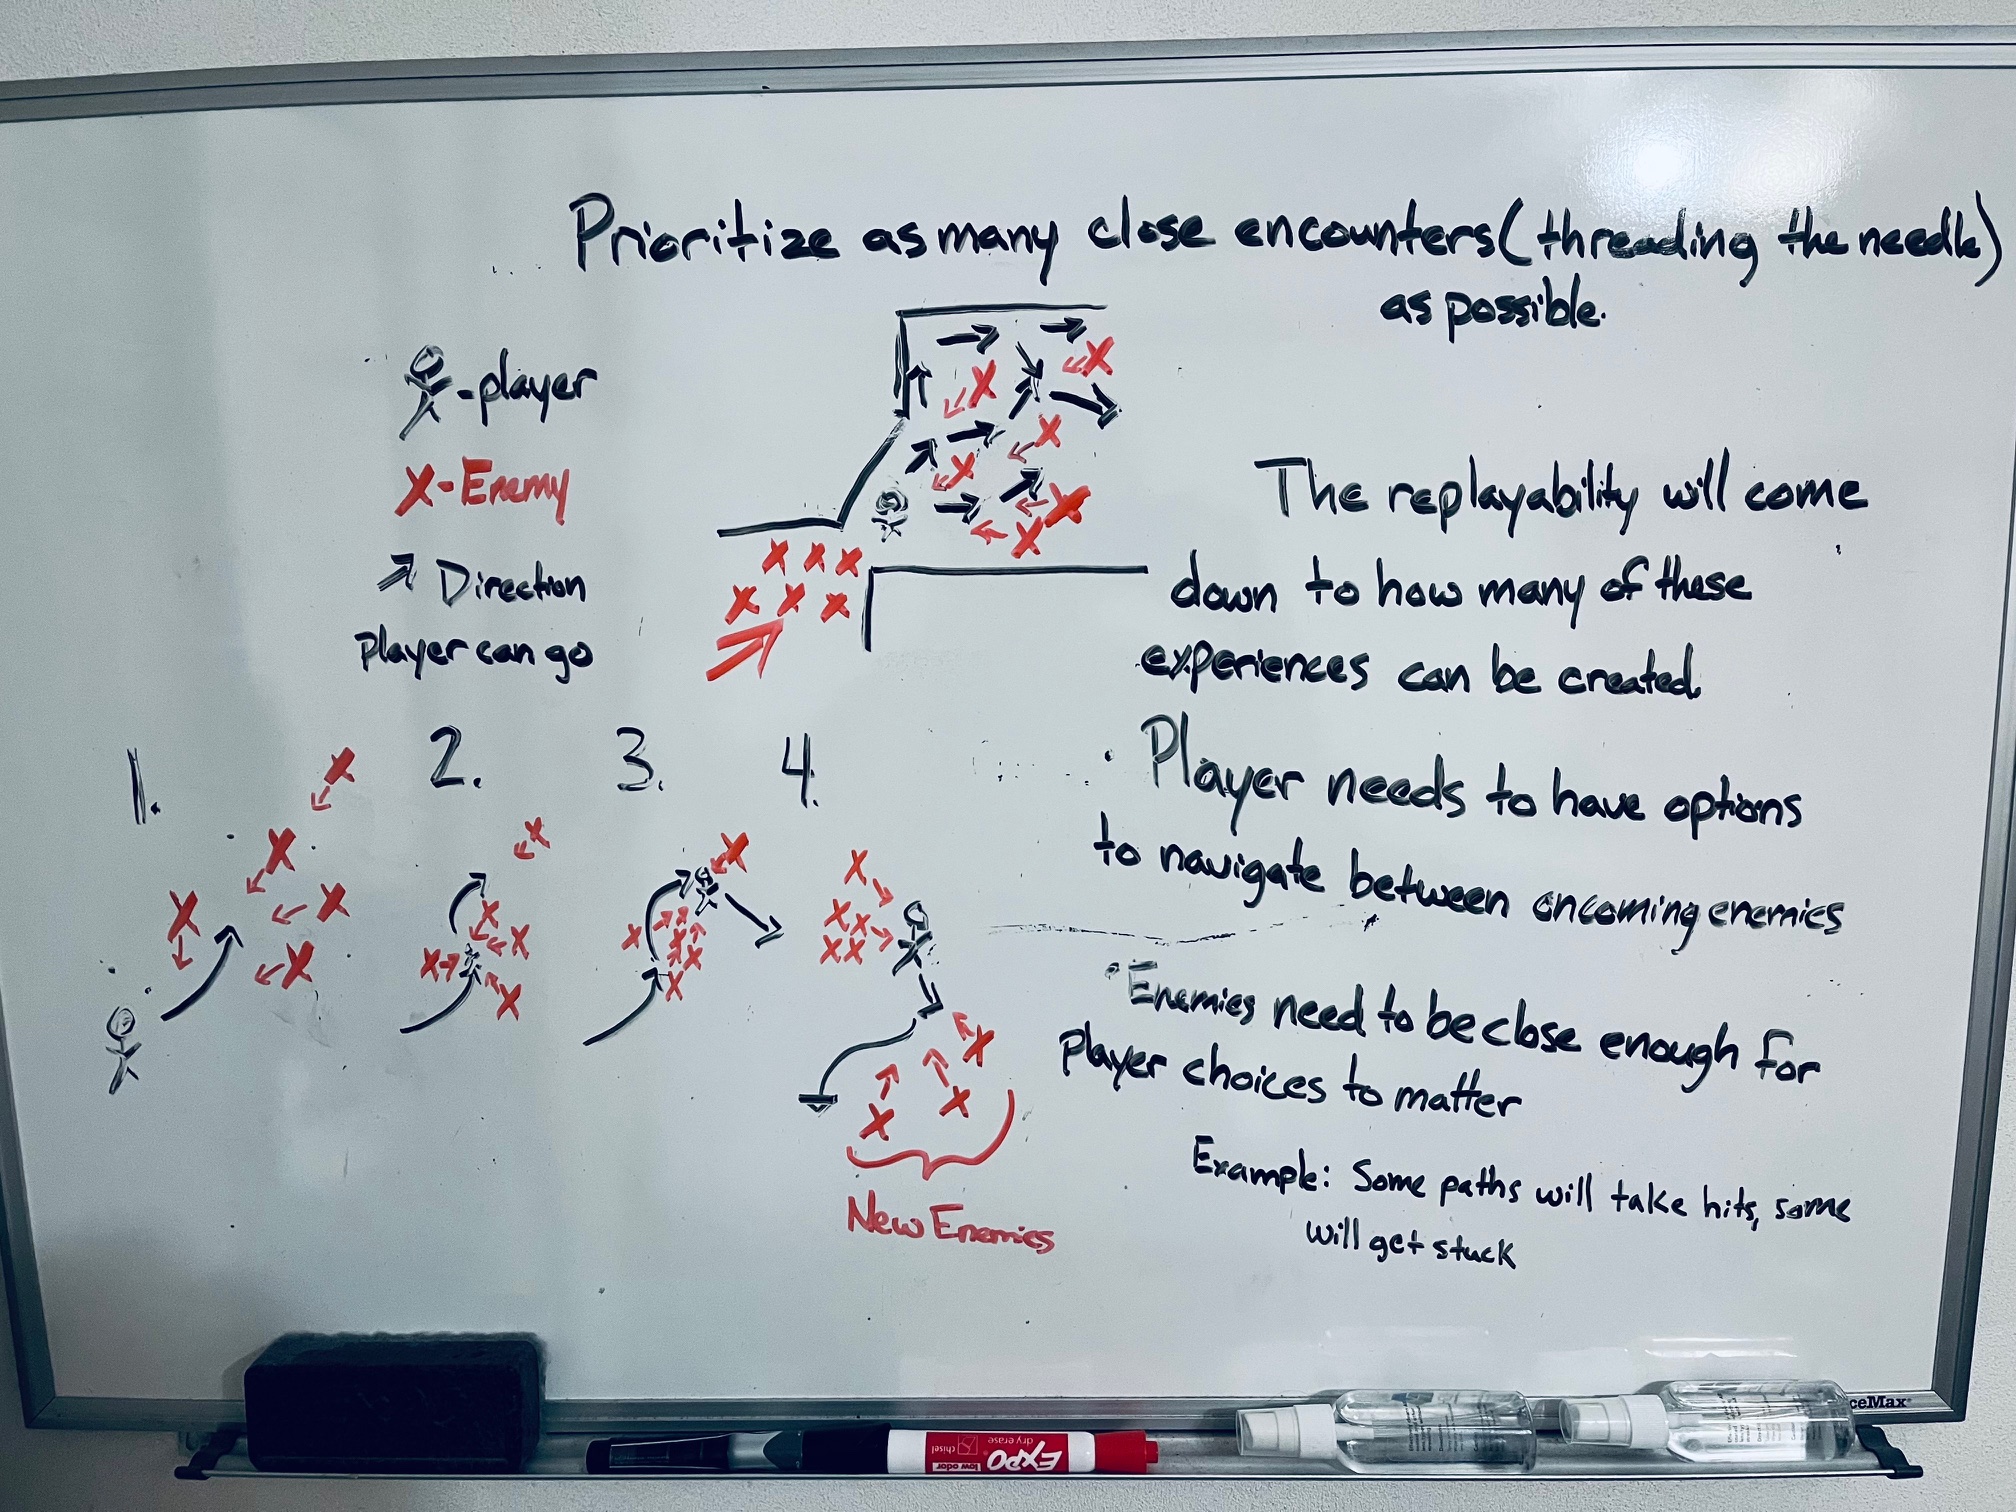 Prioritize as many close encounters (threading the needle)
as possible.
- player
X - Enemy
Direction
Player can go
The replayability will come
down to how many of these
experiences can be created.
1.
2.
3.
4.
• Player needs to have options
to navigate between oncoming enemies
• Enemies need to be close enough for
Player choices to matter
Example: Some paths will take hits, some
will get stuck
New Enemies
EXPO
low odor
dry erase
chisel
ceMax